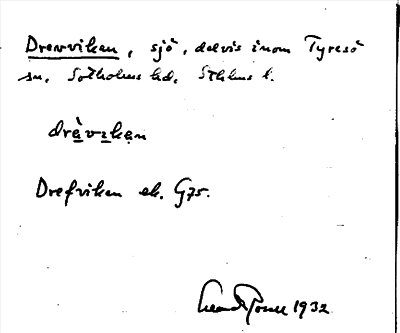 Drevviken, sjö, delvis inom Tyresö
sn. Sotholms hd. Sthlms l.
dràvikan
Drefviken ek. G75.
1932